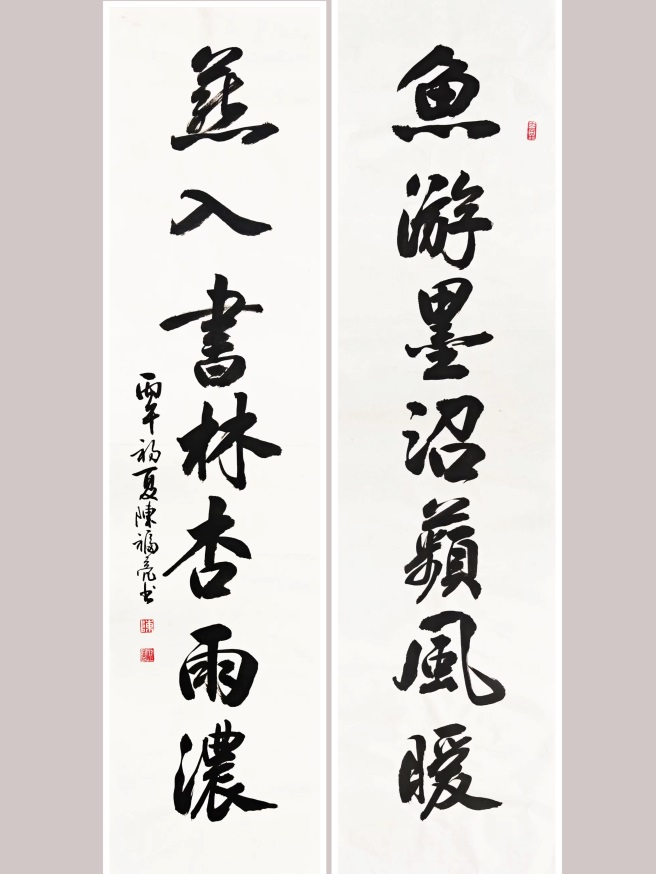 魚游墨沼蘋風暖
燕入書林杏雨濃
丙午初夏陳福亮书